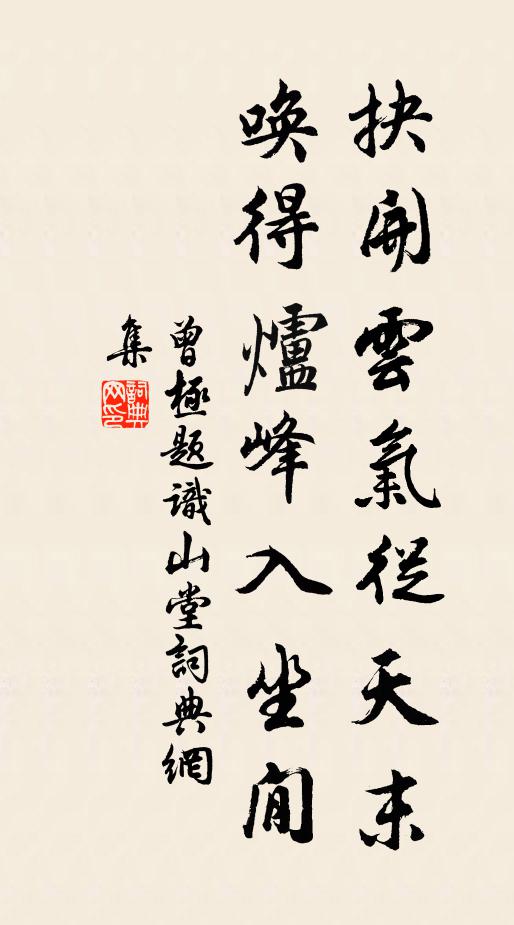 抉開雲氣從天末
喚得爐峰入坐間
曾極題識山堂詞典網
集
詞典網印